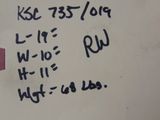 KSC 735/019
L-19"
W-10"
RW
H-11"
Wgt.-68 Lbs.